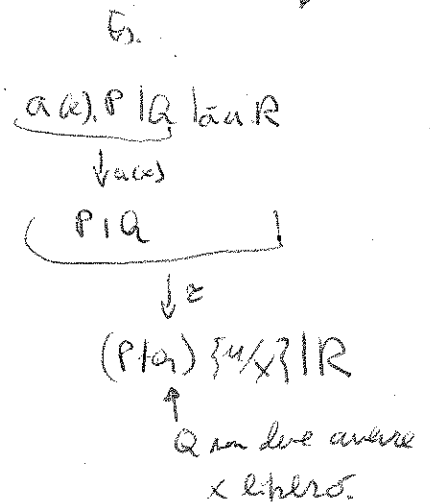 Es.
a(x).P | Q | āu.R
↓ a(x)
P | Q |
↓ τ
(P|Q) {u/x} | R
↑
Q non deve avere
x libero.